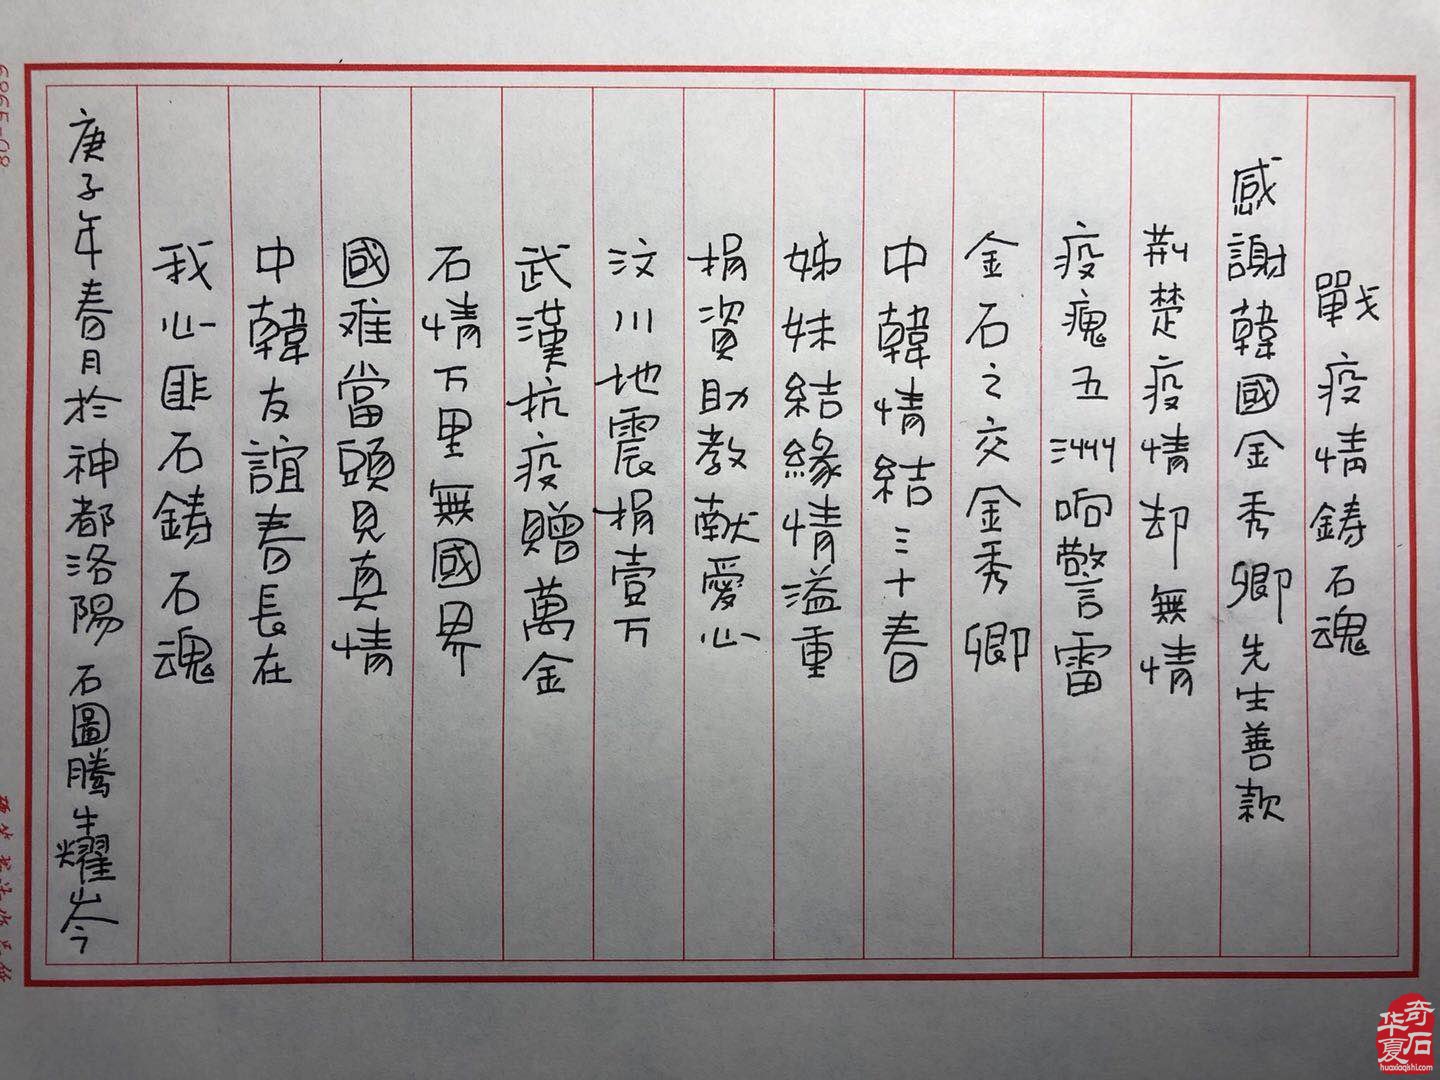 戰疫情鋳石魂
感謝韓國金秀卿先生善款
荆楚疫情却無情
疫瘣五洲响警雷
金石之交金秀卿
中韓情結三十春
姊妹結緣情溢重
捐資助教献愛心
汶川地震捐壹万
武漢抗疫贈萬金
石情万里無國界
國难當頭見真情
中韓友誼春長在
我心匪石鋳石魂
庚子年春月於神都洛陽 石圖騰牛耀岑
华夏奇石
huaxiaqishi.com